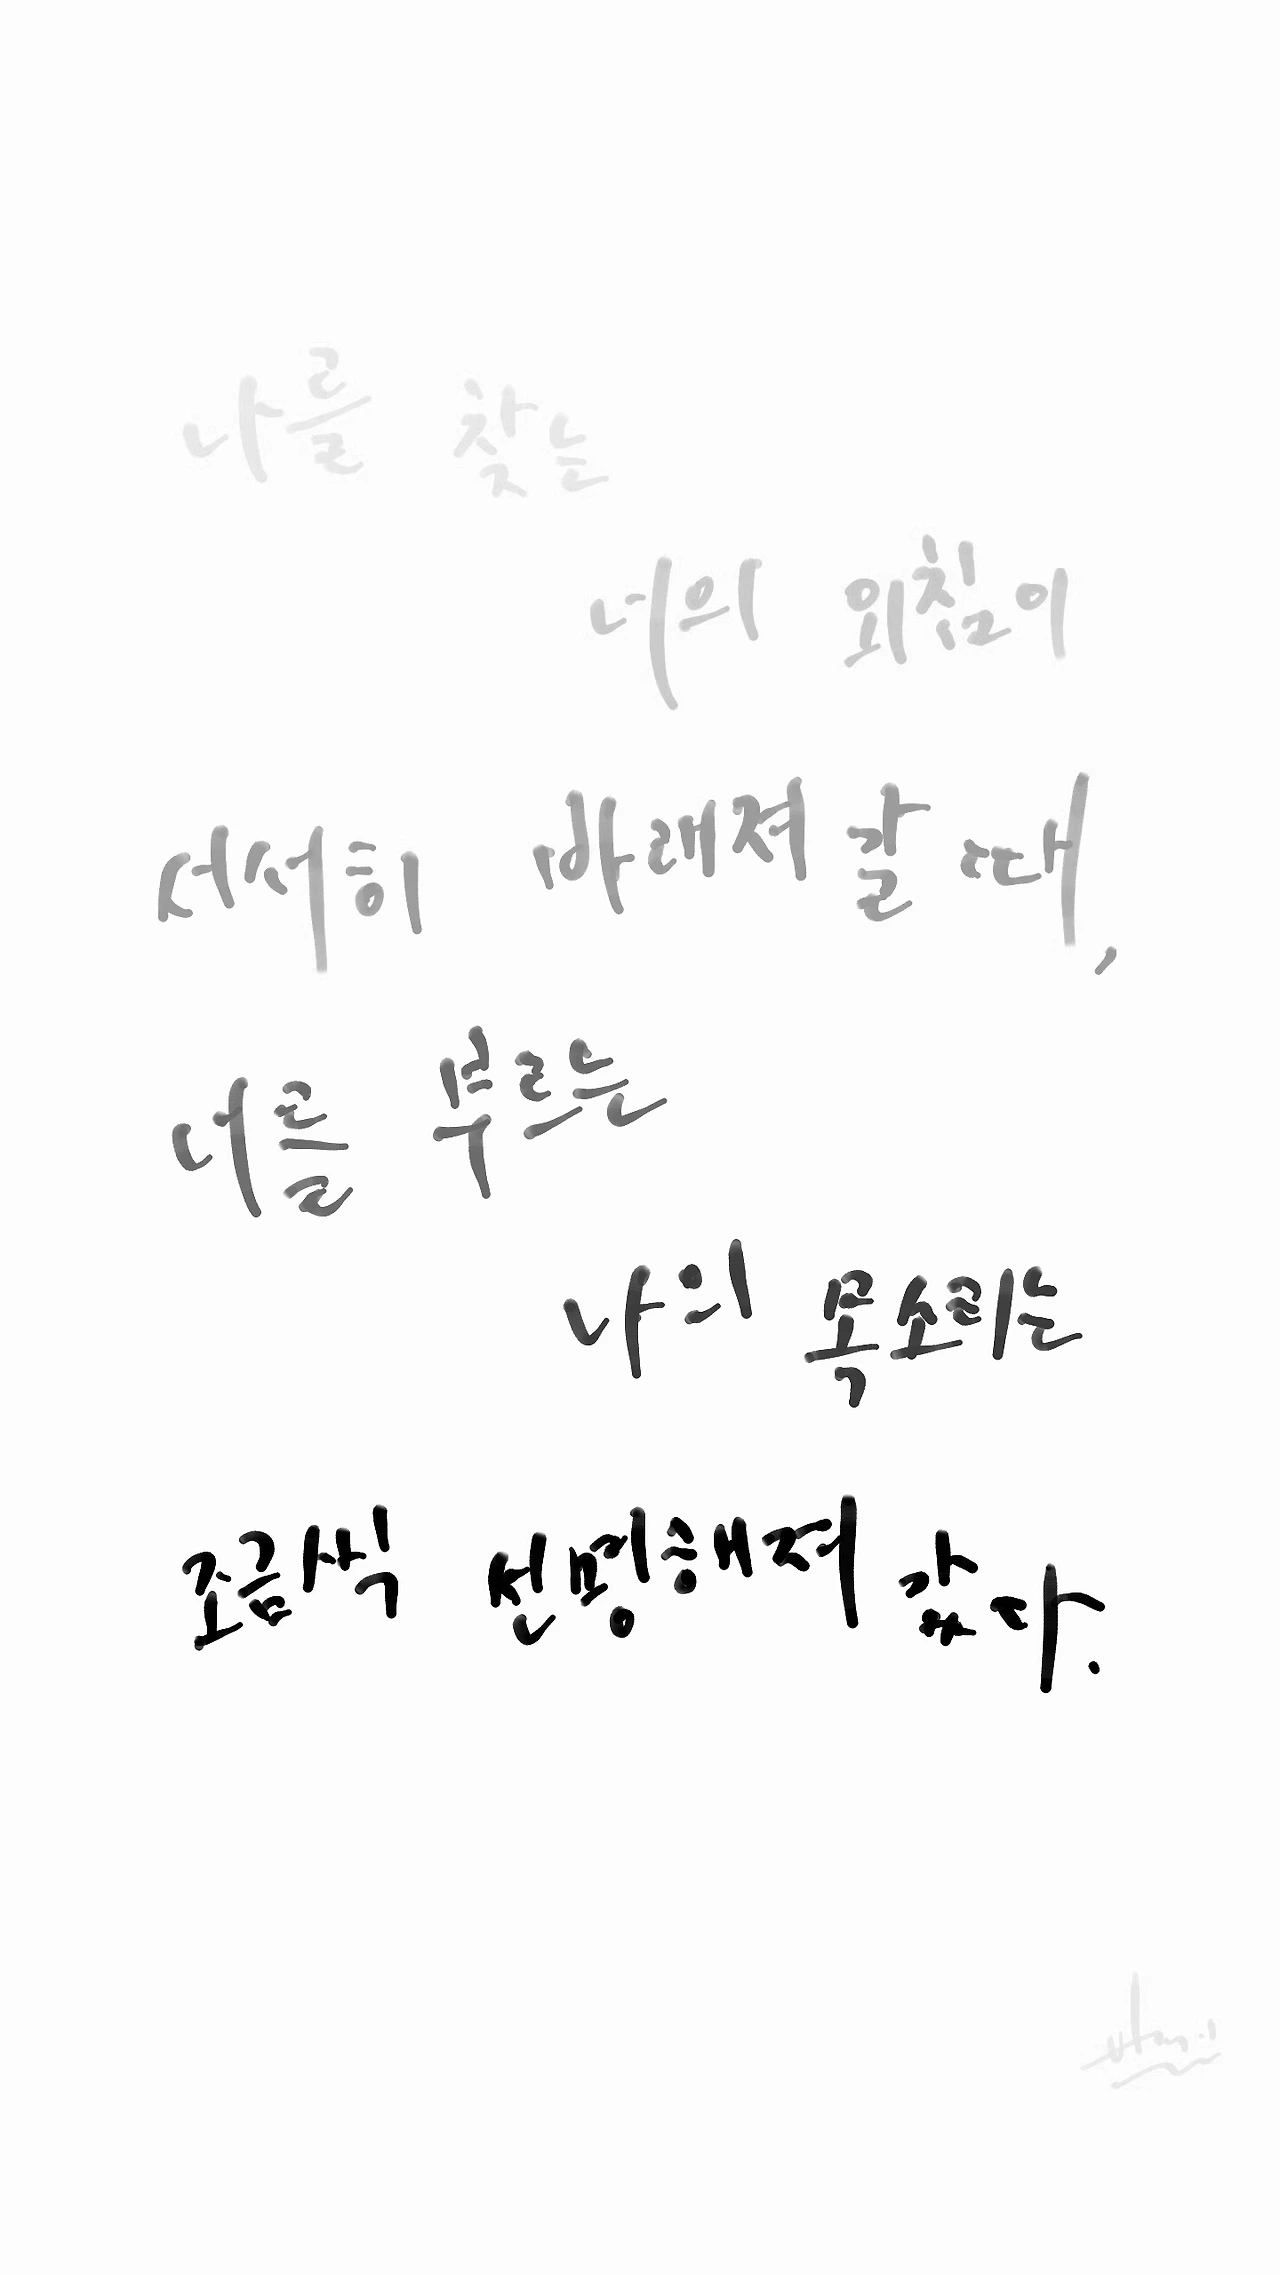 나를 찾는
너의 외침이
서서히 바래져 갈 때,
너를 부르는
나의 목소리는
조금씩 선명해져 갔다.